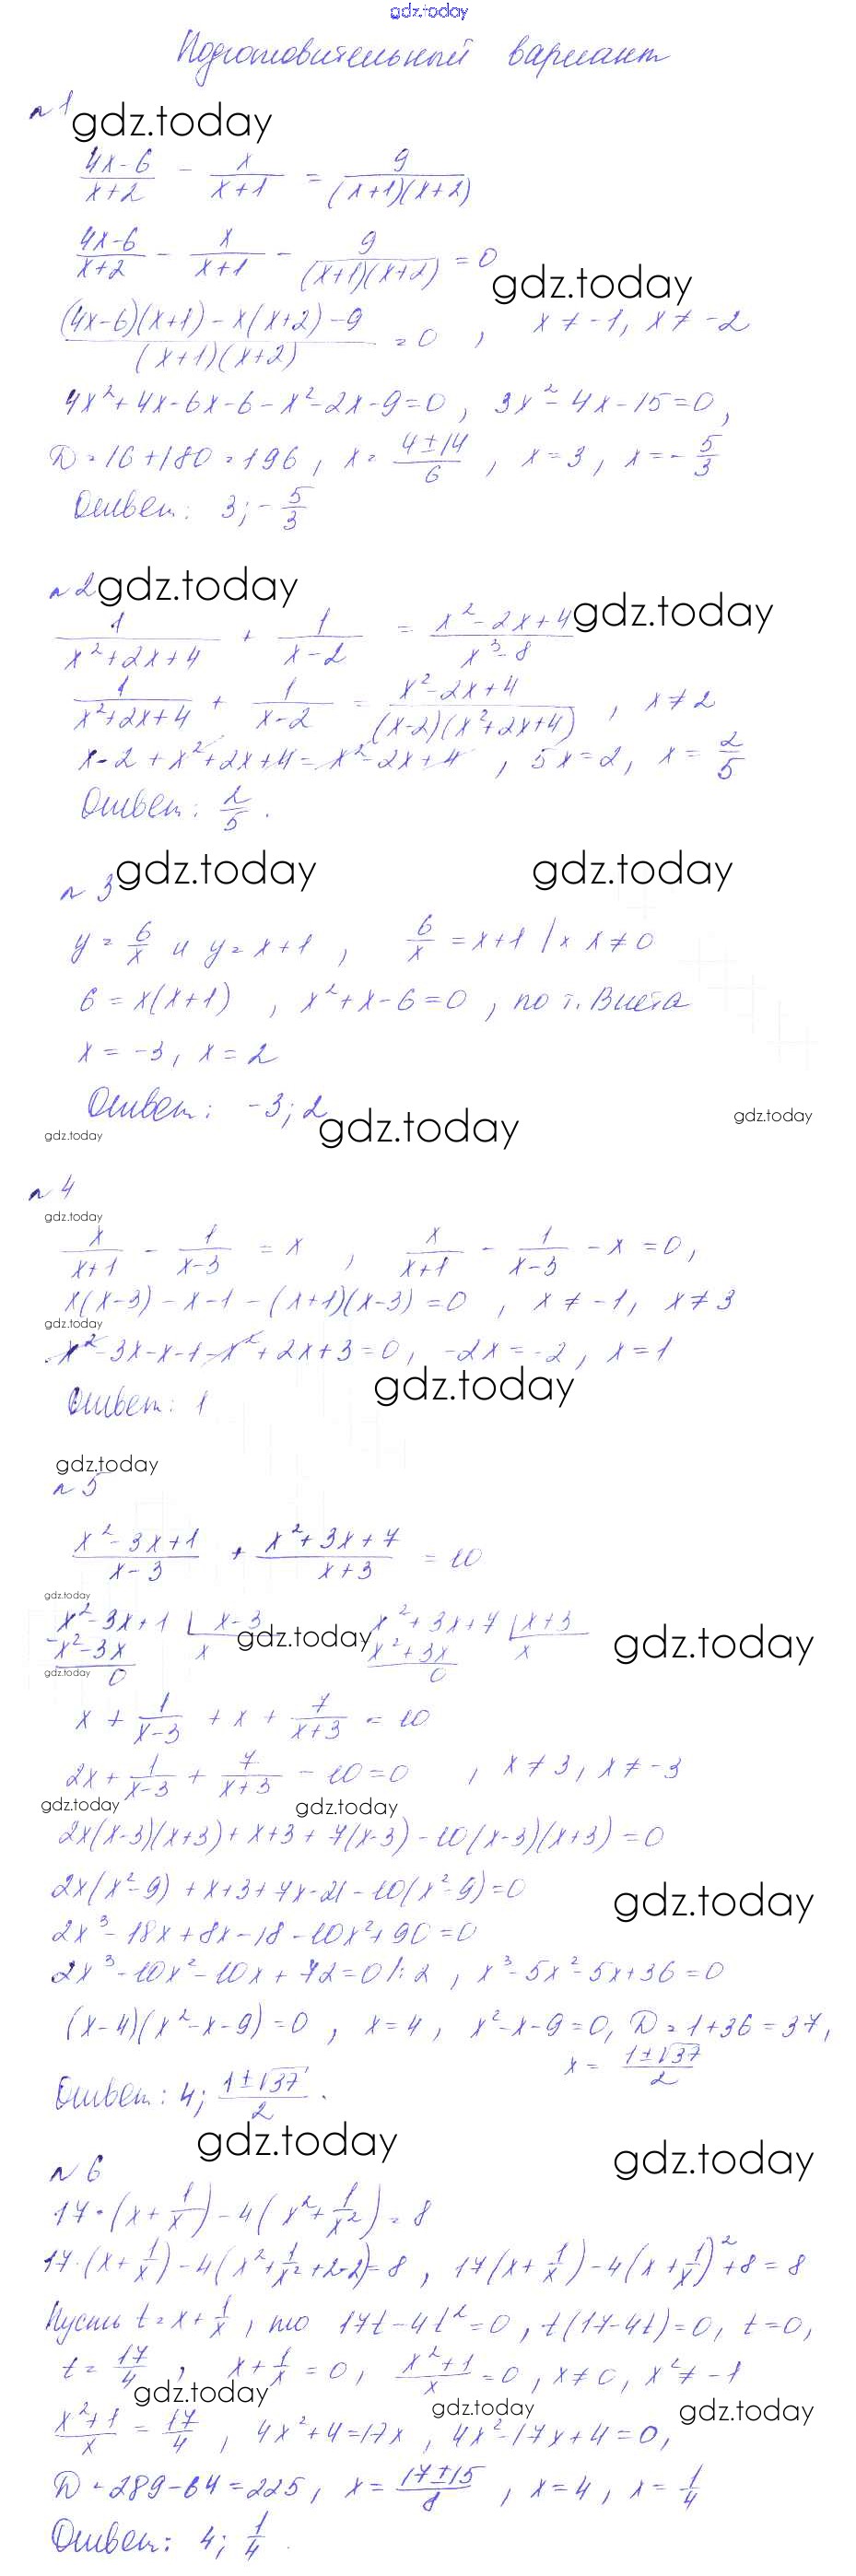 gdz.today
Подготовительный вариант
n 1 gdz.today
(4x-6)/(x+2) - x/(x+1) = 9/((x+1)(x+2))
(4x-6)/(x+2) - x/(x+1) - 9/((x+1)(x+2)) = 0
gdz.today
((4x-6)(x+1) - x(x+2) - 9)/((x+1)(x+2)) = 0 , x ≠ -1, x ≠ -2
4x²+4x-6x-6-x²-2x-9=0, 3x²-4x-15=0,
D=16+180=196, x= (4±14)/6 , x=3, x=- 5/3
Ответ: 3; - 5/3
n 2 gdz.today
1/(x²+2x+4) + 1/(x-2) = (x²-2x+4)/(x³-8) gdz.today
1/(x²+2x+4) + 1/(x-2) = (x²-2x+4)/((x-2)(x²+2x+4)) , x≠2
x-2+x²+2x+4=x²-2x+4 , 5x=2, x= 2/5
Ответ: 2/5 .
n 3 gdz.today gdz.today
y= 6/x и y=x+1 , 6/x = x+1 |·x x≠0
6=x(x+1) , x²+x-6=0 , по т. Виета
x=-3, x=2
Ответ: -3; 2
gdz.today gdz.today
gdz.today
n 4
gdz.today
x/(x+1) - 1/(x-3) = x , x/(x+1) - 1/(x-3) - x = 0,
x(x-3)-x-1-(x+1)(x-3)=0 , x≠-1, x≠3
gdz.today
x²-3x-x-1-x²+2x+3=0, -2x=-2, x=1
gdz.today
Ответ: 1
gdz.today
n 5
(x²-3x+1)/(x-3) + (x²+3x+7)/(x+3) = 10
gdz.today
x²-3x+1 | x-3 x²+3x+7 | x+3
-x²-3x x gdz.today x²+3x x gdz.today
gdz.today 0 0
x + 1/(x-3) + x + 7/(x+3) = 10
2x+ 1/(x-3) + 7/(x+3) - 10=0 , x≠3, x≠-3
gdz.today gdz.today
2x(x-3)(x+3)+x+3+7(x-3)-10(x-3)(x+3)=0
2x(x²-9)+x+3+7x-21-10(x²-9)=0
gdz.today
2x³-18x+8x-18-10x²+90=0
2x³-10x²-10x+72=0 |:2 , x³-5x²-5x+36=0
(x-4)(x²-x-9)=0 , x=4, x²-x-9=0, D=1+36=37,
x= (1±√37)/2
Ответ: 4; (1±√37)/2 .
gdz.today gdz.today
n 6
17·(x+ 1/x) -4(x²+ 1/x²) = 8
17·(x+ 1/x) -4(x²+ 1/x² +2-2)=8 , 17(x+ 1/x) -4(x+ 1/x)²+8=8
Пусть t=x+ 1/x , то 17t-4t²=0, t(17-4t)=0, t=0,
t= 17/4 , x+ 1/x =0, (x²+1)/x =0, x≠0, x²≠-1
gdz.today gdz.today gdz.today
(x²+1)/x = 17/4 , 4x²+4=17x , 4x²-17x+4=0,
D=289-64=225, x= (17±15)/8 , x=4, x= 1/4
Ответ: 4; 1/4 .